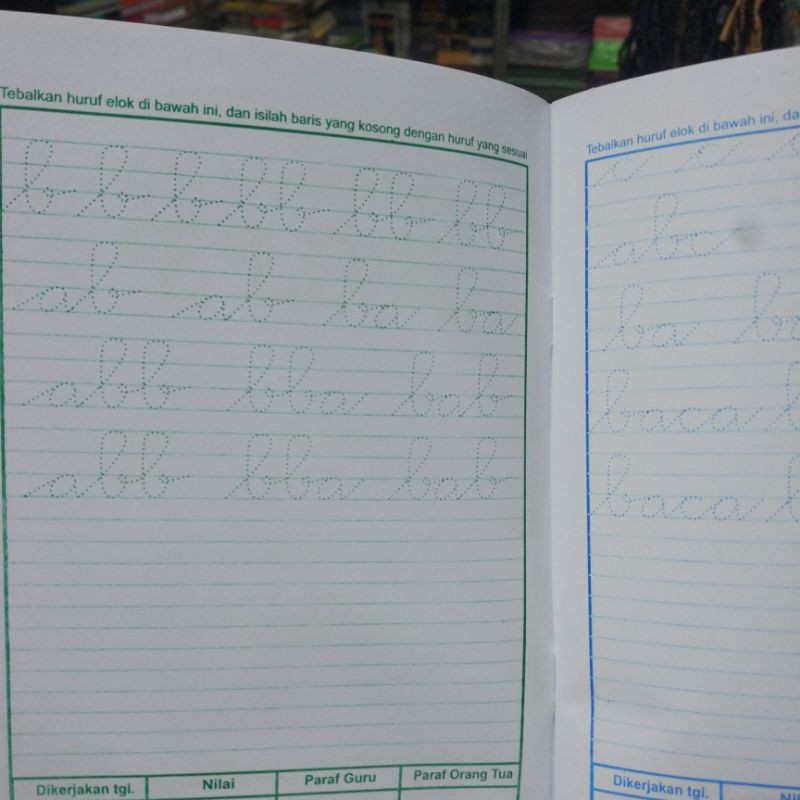 Tebalkan huruf elok di bawah ini, dan isilah baris yang kosong dengan huruf yang sesuai
b b b bb bb bb
ab ab ba ba
abb bba bab
abb bba bab
Dikerjakan tgl. Nilai Paraf Guru Paraf Orang Tua
Tebalkan huruf elok di bawah ini,
abc
ba
baca
baca
Dikerjakan tgl.